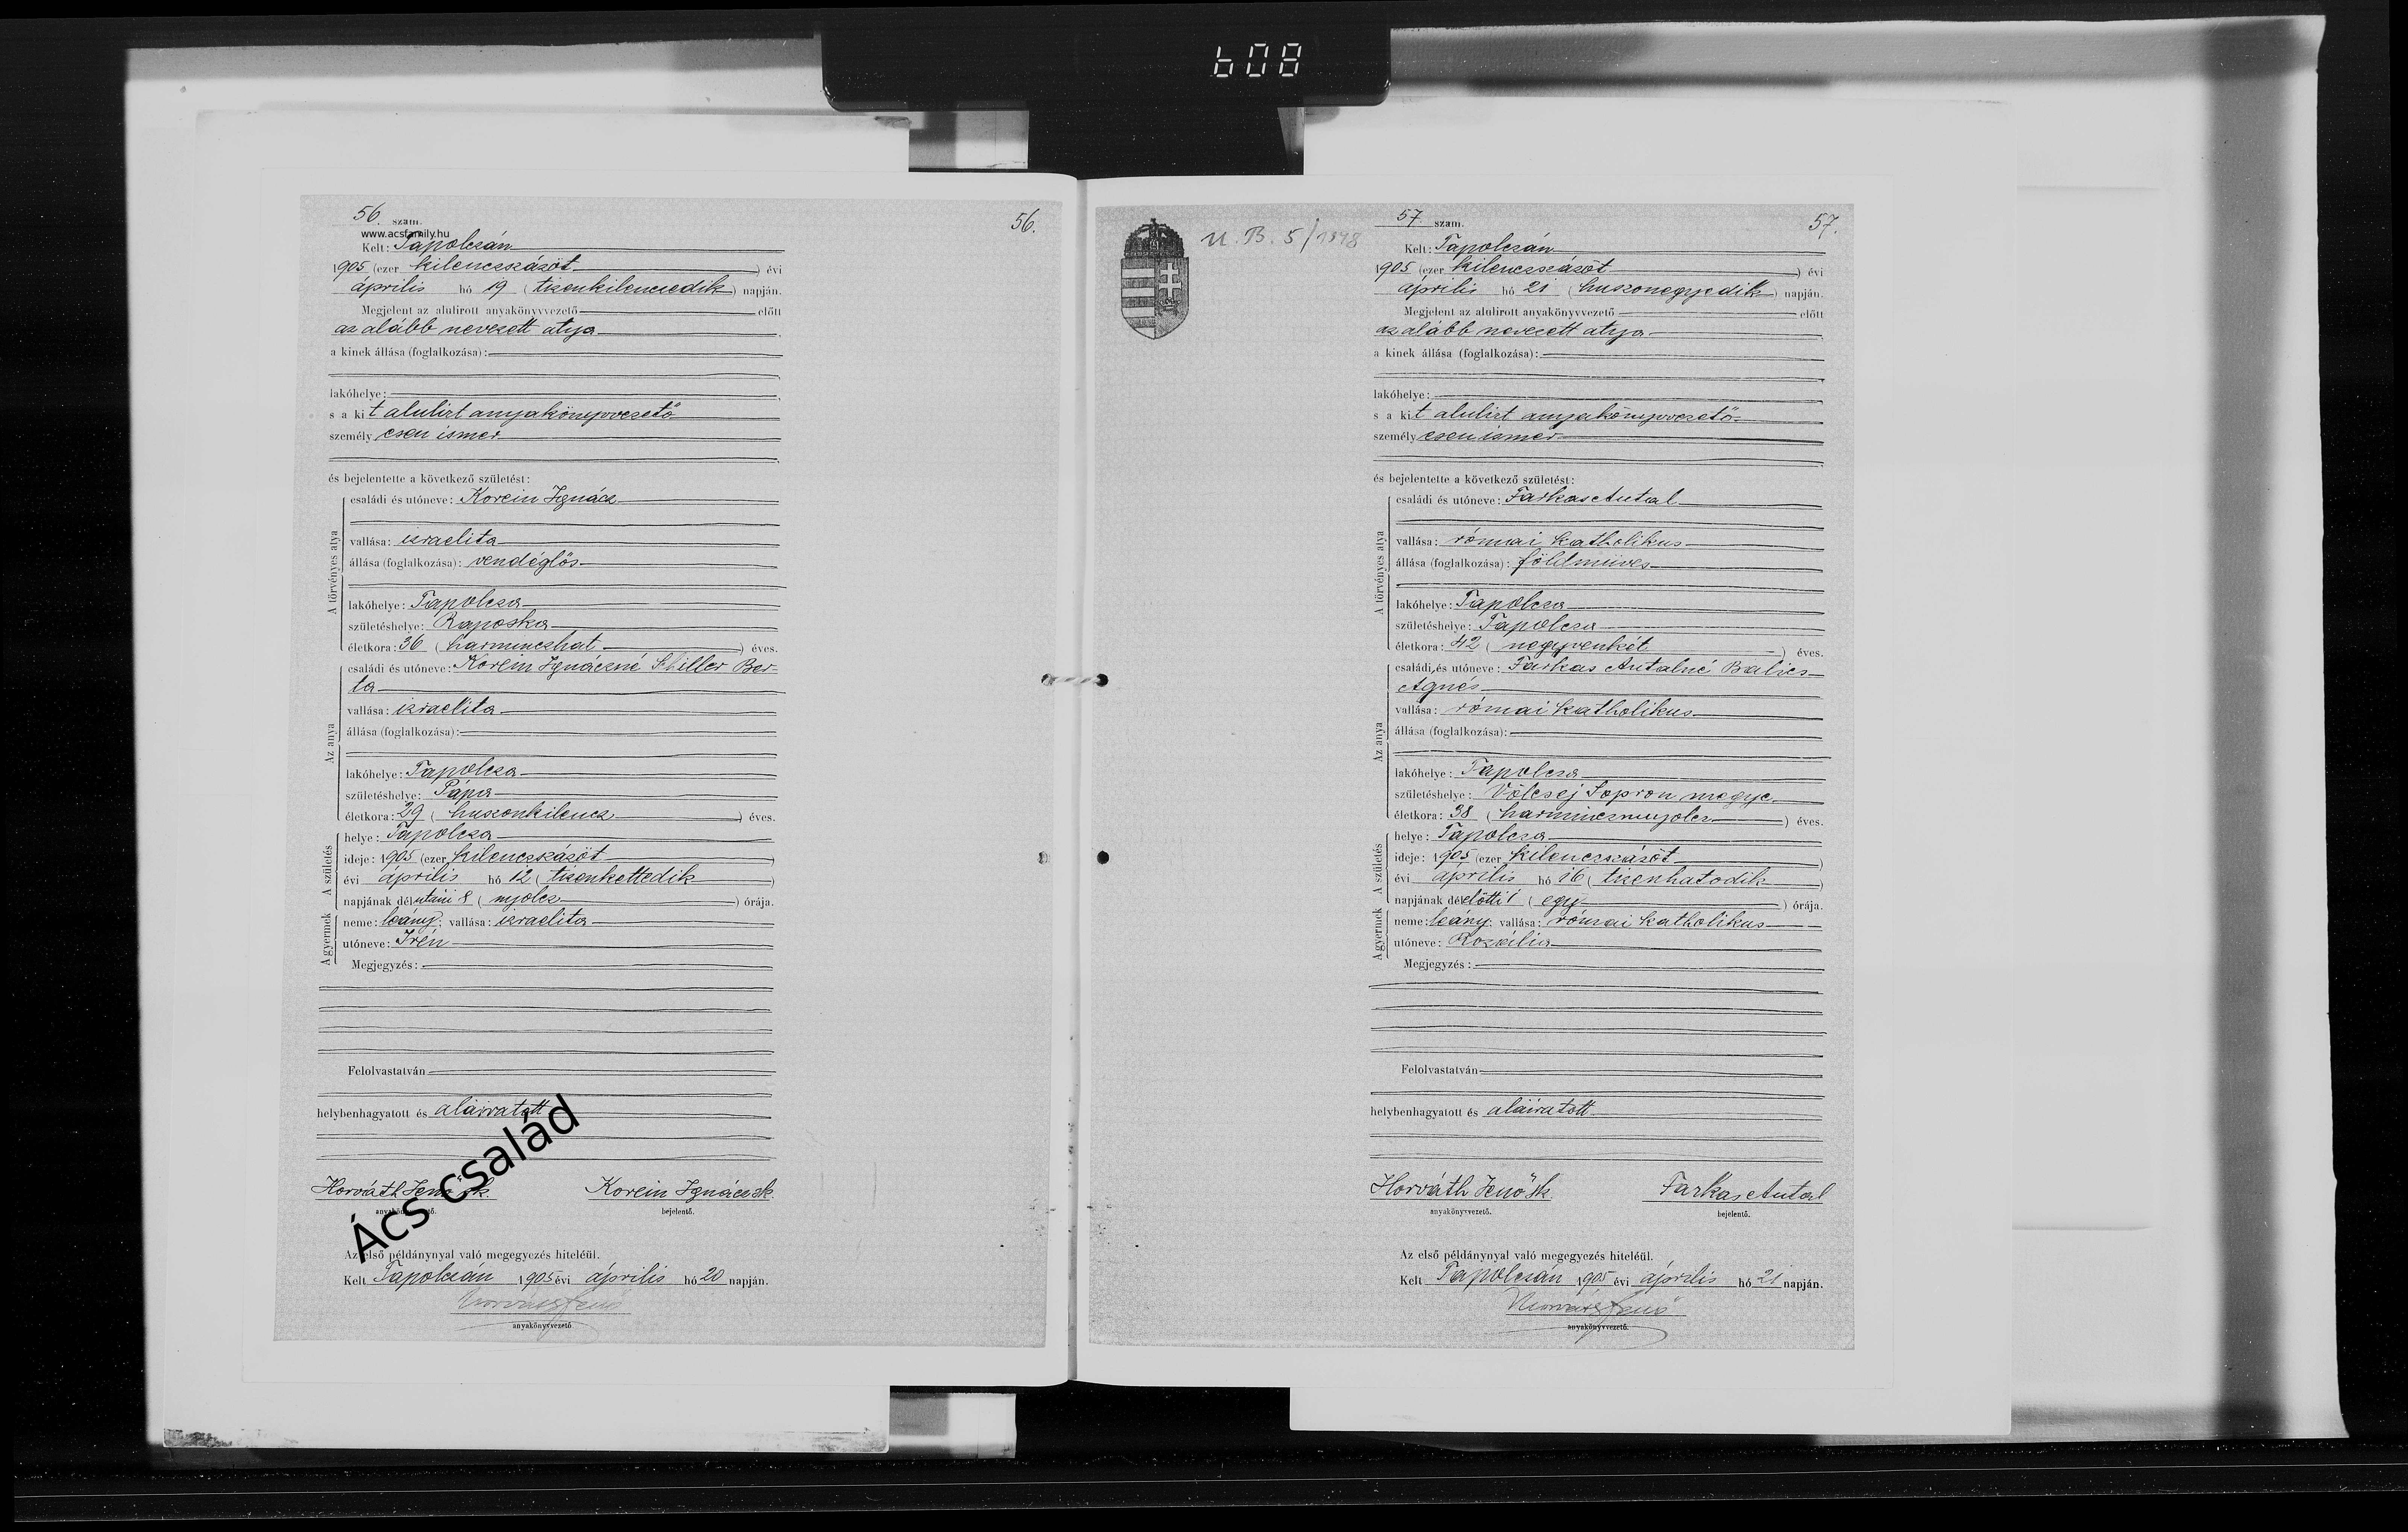 608
56 szam. 56.
www.acsfamily.hu
Kelt: Tapolczán
1905 (ezer kilenczszázöt ) évi
április hó 19 ( tizenkilenczedik ) napján.
Megjelent az alulirott anyakönyvvezető előtt
az alább nevezett atya
a kinek állása (foglalkozása):
lakóhelye:
s a kit alulirt anyakönyvvezető
személyesen ismer
és bejelentette a következő születést:
A törvényes atya
családi és utóneve: Korein Ignácz
vallása: izraelita
állása (foglalkozása): vendéglős
lakóhelye: Tapolcza
születéshelye: Raposka
életkora: 36 ( harminczhat ) éves.
Az anya
családi és utóneve: Korein Ignáczné Schiller Ber-
ta
vallása: izraelita
állása (foglalkozása):
lakóhelye: Tapolcza
születéshelye: Pápa
életkora: 29 ( huszonkilencz ) éves.
A születés
helye: Tapolcza
ideje: 1905 (ezer kilenczszázöt )
évi április hó 12 ( tizenkettedik )
napjának délutáni 8 ( nyolcz ) órája.
A gyermek
neme: leány; vallása: izraelita
utóneve: Irén
Megjegyzés:
Felolvastatván
helybenhagyatott és aláiratott
Horváth Jenő sk. Korein Ignácz sk.
anyakönyvvezető. bejelentő.
Ács család
Az első példánynyal való megegyezés hiteléül.
Kelt Tapolczán 1905 évi április hó 20 napján.
Horváth Jenő
anyakönyvvezető.
U. B. 5/1948
57 szam. 57.
Kelt: Tapolczán
1905 (ezer kilenczszázöt ) évi
április hó 21 ( huszonegyedik ) napján.
Megjelent az alulirott anyakönyvvezető előtt
az alább nevezett atya
a kinek állása (foglalkozása):
lakóhelye:
s a kit alulirt anyakönyvvezető
személyesen ismer
és bejelentette a következő születést:
A törvényes atya
családi és utóneve: Farkas Antal
vallása: római katholikus
állása (foglalkozása): földmüves
lakóhelye: Tapolcza
születéshelye: Tapolcza
életkora: 42 ( negyvenkét ) éves.
Az anya
családi és utóneve: Farkas Antalné Balics
Ágnes
vallása: római katholikus
állása (foglalkozása):
lakóhelye: Tapolcza
születéshelye: Völcsej Sopron megye
életkora: 38 ( harmincznyolcz ) éves.
A születés
helye: Tapolcza
ideje: 1905 (ezer kilenczszázöt )
évi április hó 16 ( tizenhatodik )
napjának délelőtti 1 ( egy ) órája.
A gyermek
neme: leány; vallása: római katholikus
utóneve: Rozália
Megjegyzés:
Felolvastatván
helybenhagyatott és aláiratott
Horváth Jenő sk. Farkas Antal
anyakönyvvezető. bejelentő.
Az első példánynyal való megegyezés hiteléül.
Kelt Tapolczán 1905 évi április hó 21 napján.
Horváth Jenő
anyakönyvvezető.